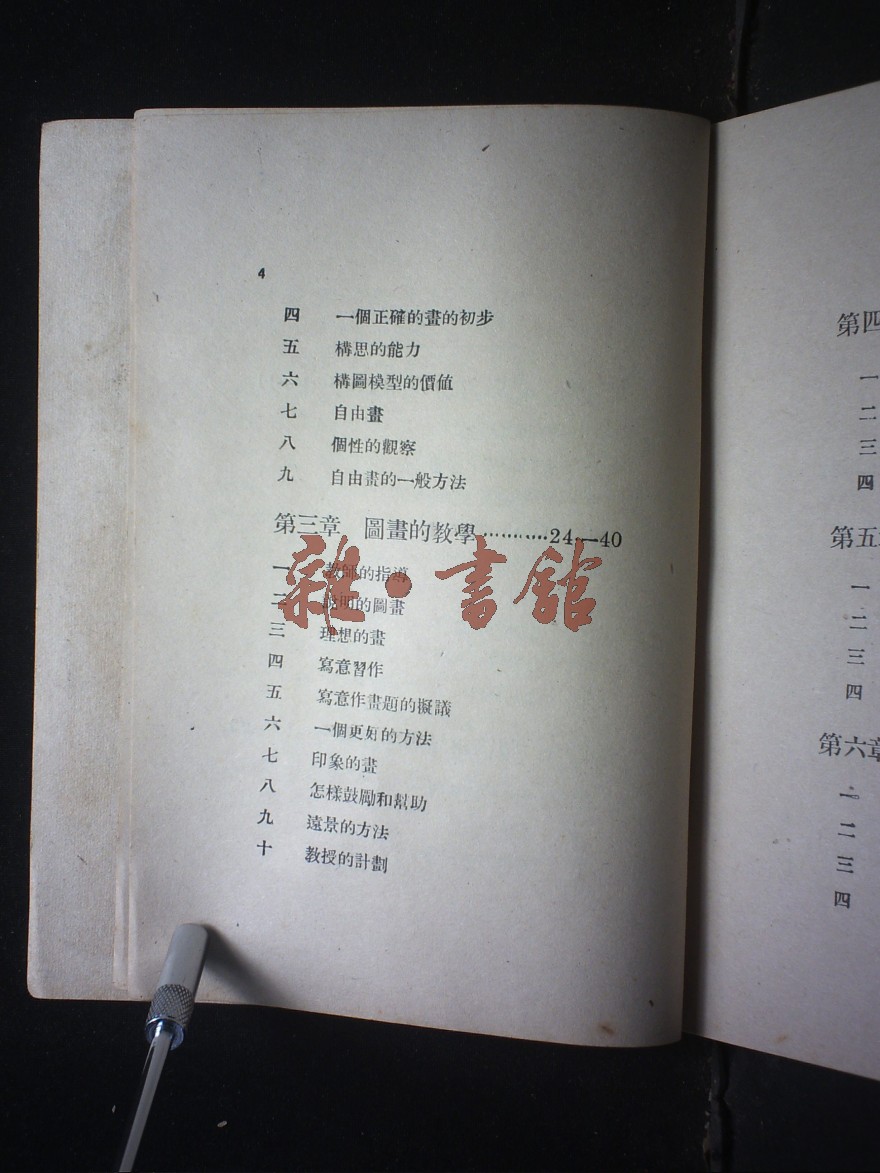 4
四 一個正確的畫的初步
五 構思的能力
六 構圖模型的價値
七 自由畫
八 個性的觀察
九 自由畫的一般方法
第三章 圖畫的教學…………24—40
一 教師的指導
二 說明的圖畫
三 理想的畫
四 寫意習作
五 寫意作畫題的擬議
六 一個更好的方法
七 印象的畫
八 怎樣鼓勵和幫助
九 遠景的方法
十 教授的計劃
雜·書館
第四
一
二
三
四
第五
一
二
三
四
第六章
一
二
三
四